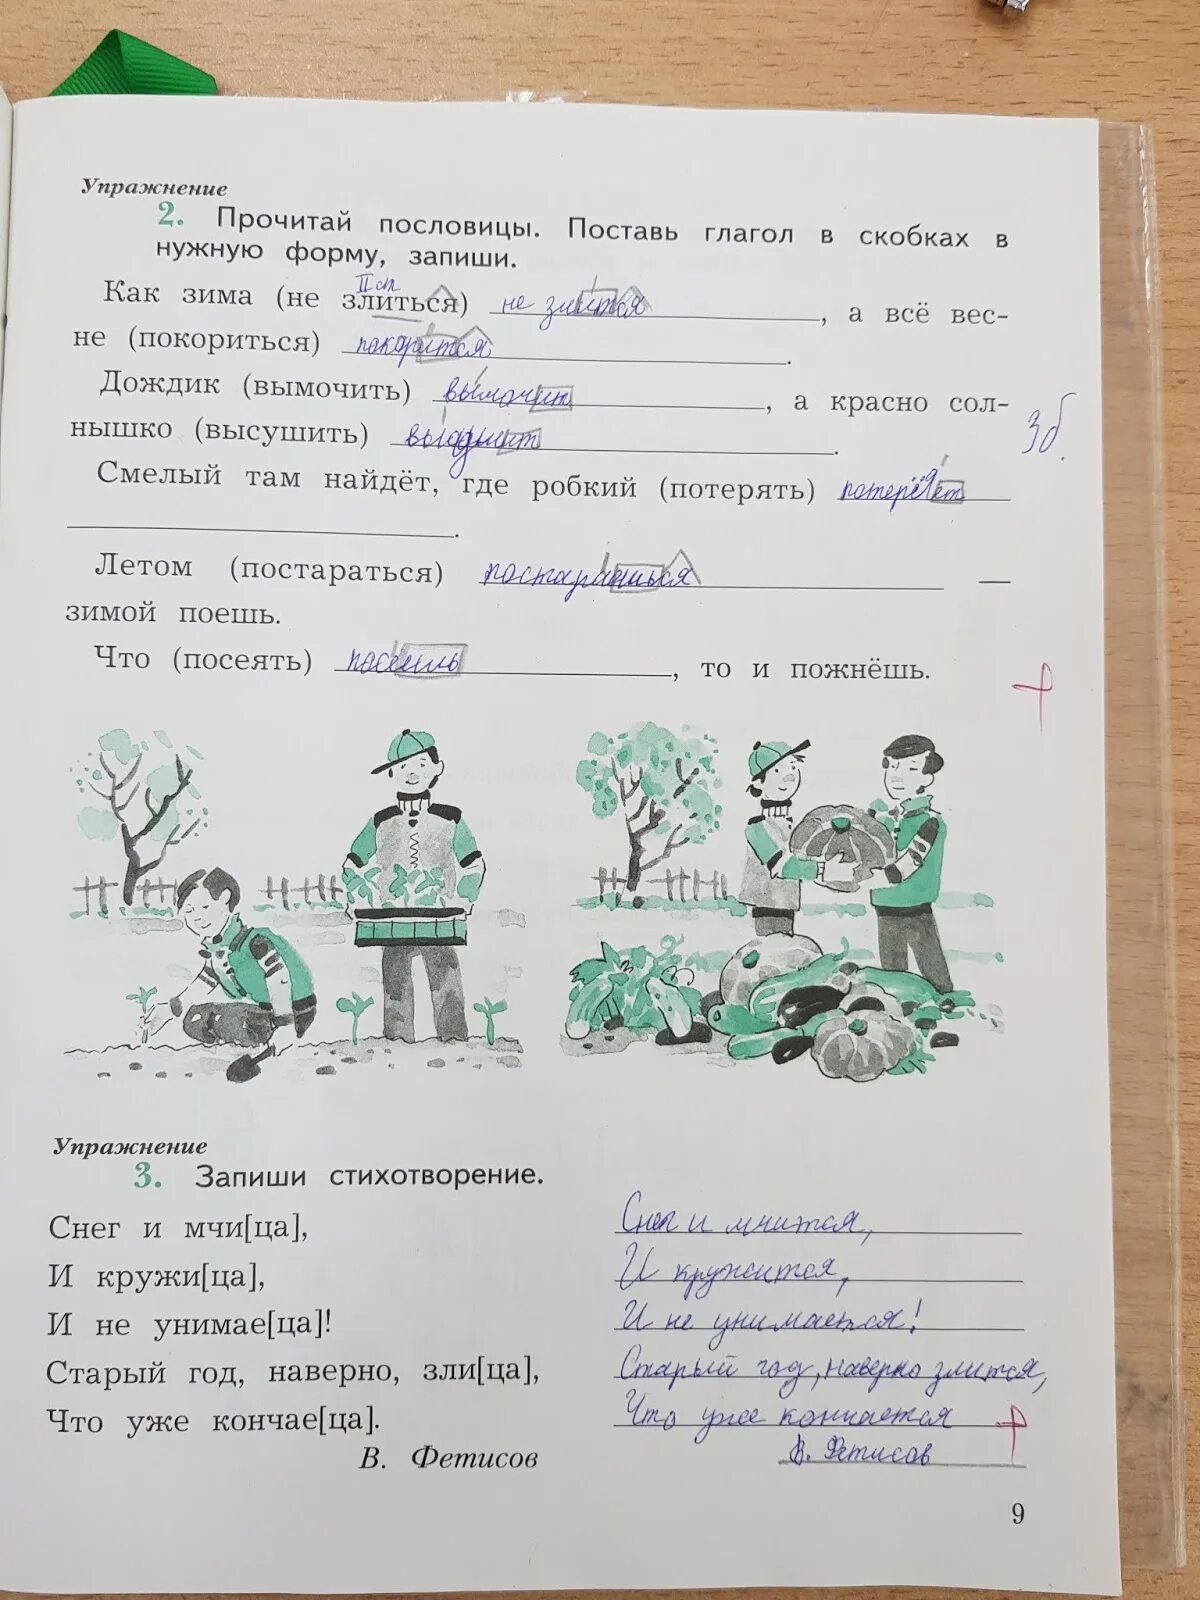 Упражнение
2. Прочитай пословицы. Поставь глагол в скобках в
нужную форму, запиши.
II сп.
Как зима (не злиться) не злится, а всё вес-
не (покориться) покорится.
Дождик (вымочить) вымочит, а красно сол-
нышко (высушить) высушит.
Смелый там найдёт, где робкий (потерять) потеряет
.
Летом (постараться) постараешься —
зимой поешь.
Что (посеять) посеешь, то и пожнёшь.
Упражнение
3. Запиши стихотворение.
Снег и мчи[ца], Снег и мчится,
И кружи[ца], И кружится,
И не унимае[ца]! И не унимается!
Старый год, наверно, зли[ца], Старый год, наверно злится,
Что уже кончае[ца]. Что уже кончается
В. Фетисов В. Фетисов
9